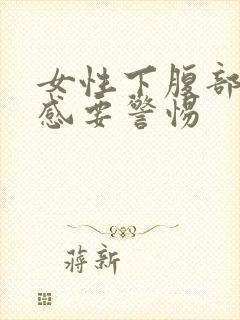 女性下腹部
感要警惕
蒋新